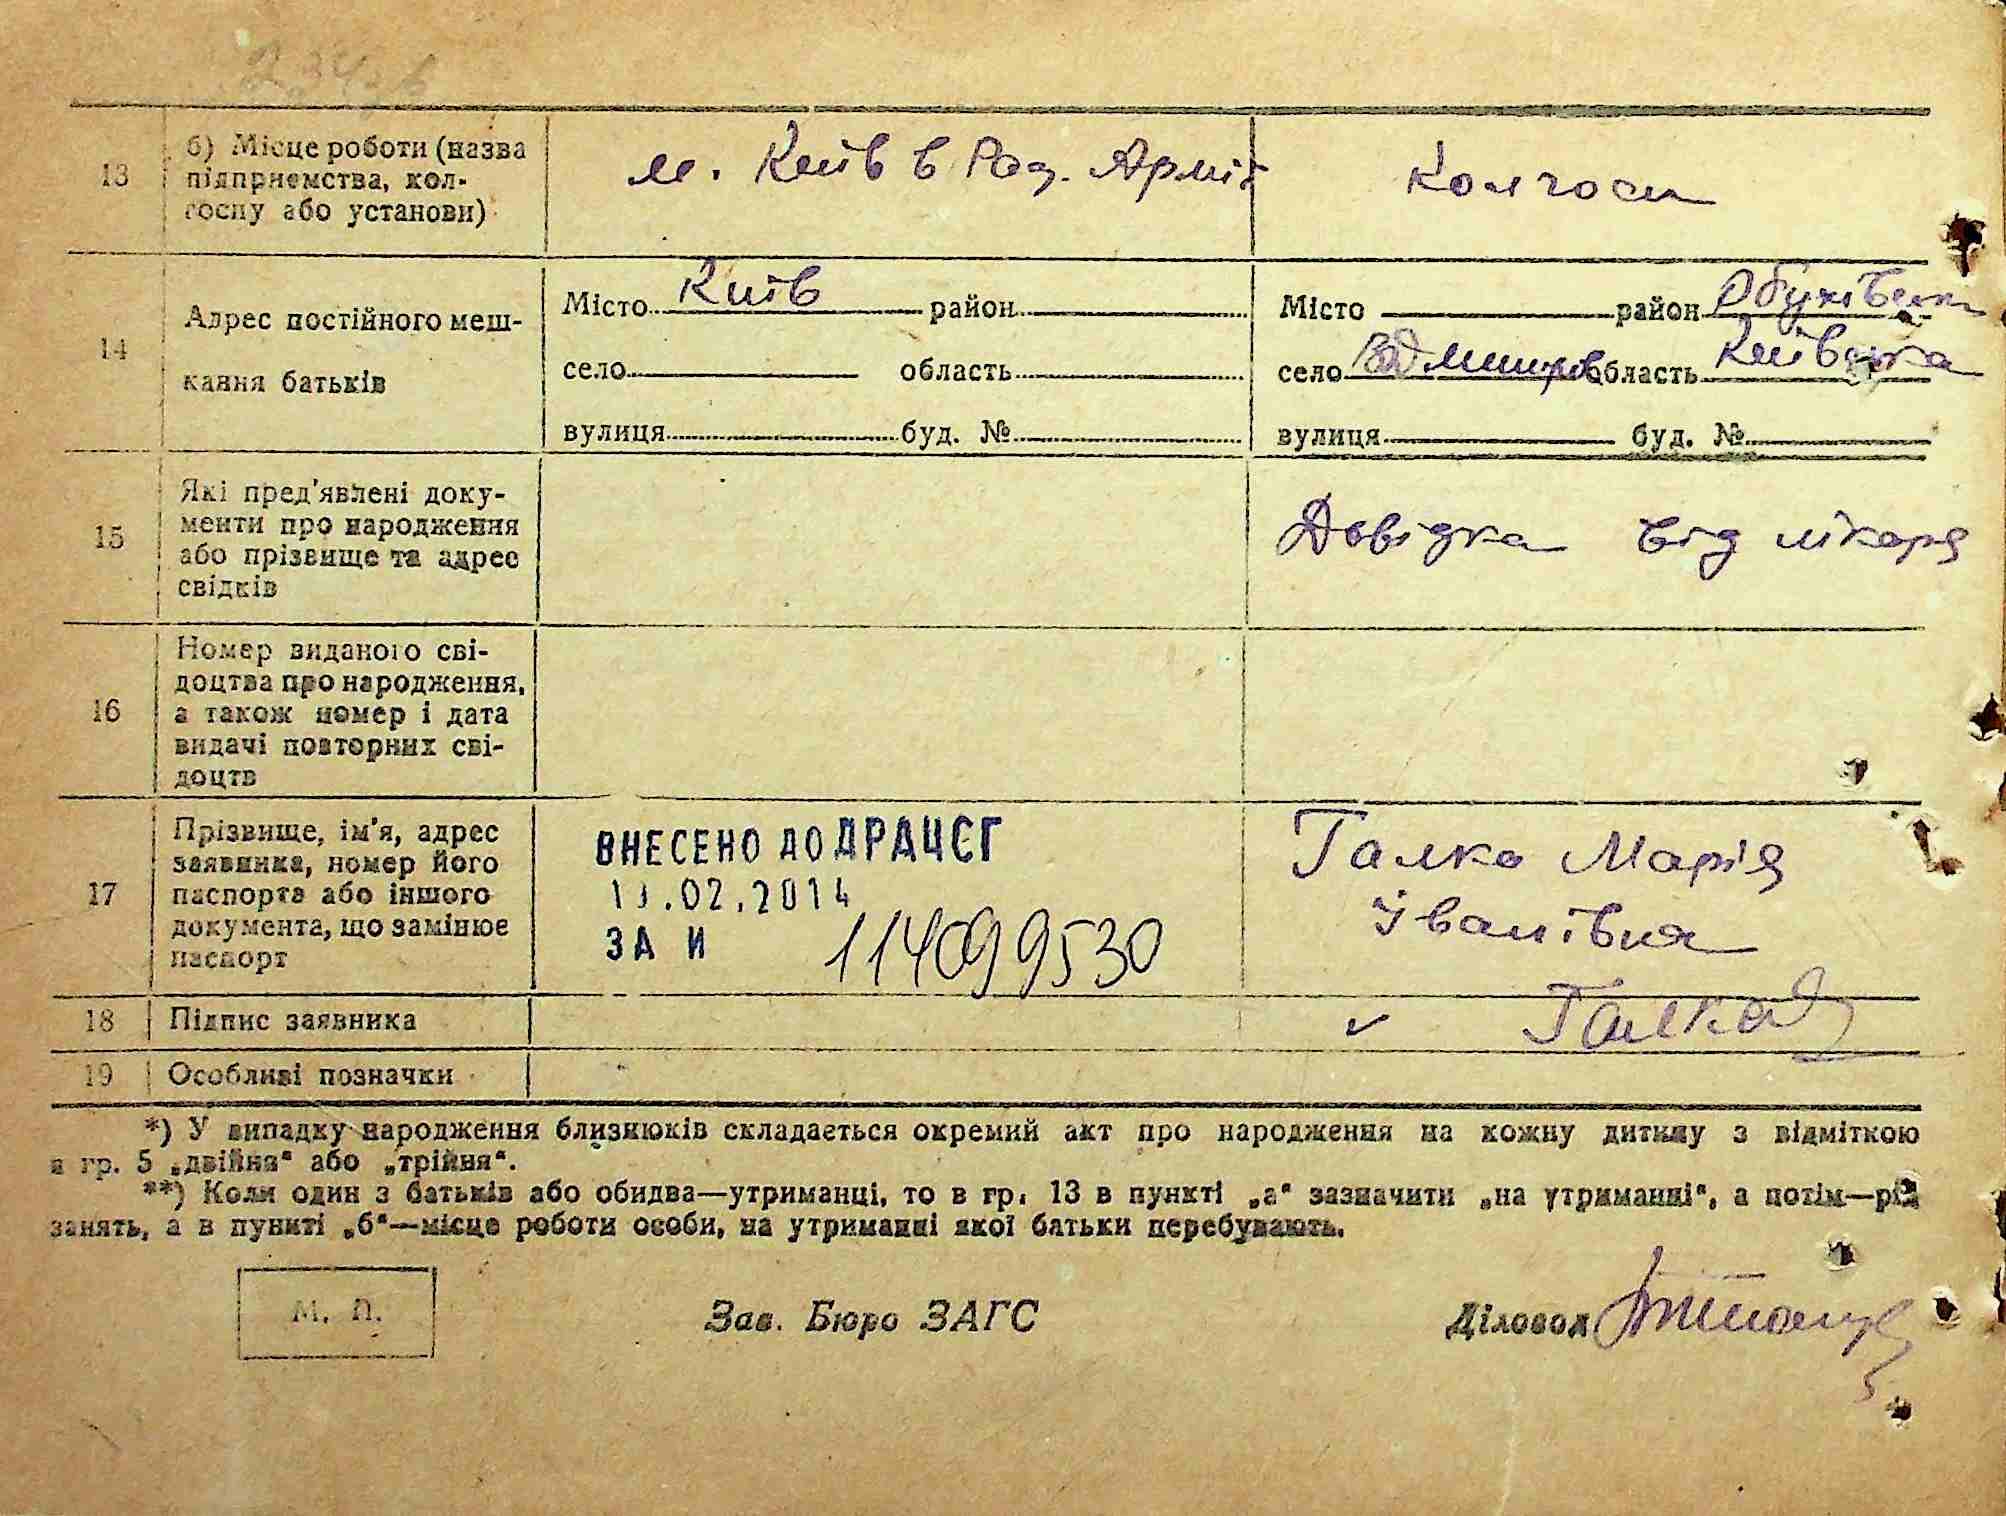 13
б) Місце роботи (назва
підприємства, кол-
госпу або установи)
м. Київ в Рад. Армії
Колгосп
14
Адрес постійного меш-
кання батьків
Місто Київ район
село область
вулиця буд. №
Місто район
село область Київська
вулиця буд. №
15
Які пред'явлені доку-
менти про народження
або прізвище та адрес
свідків
Довідка від лікаря
16
Номер виданого сві-
доцтва про народження,
а також номер і дата
видачі повторних сві-
доцтв
17
Прізвище, ім'я, адрес
заявника, номер його
паспорта або іншого
документа, що замінює
паспорт
ВНЕСЕНО ДО ДРАЦСГ
.02.2014
ЗА И 114099530
Галка Марія
Іванівна
18
Підпис заявника
Галка
19
Особливі позначки
*) У випадку народження близнюків складається окремий акт про народження на кожну дитину з відміткою
в гр. 5 „двійня“ або „трійня“.
**) Коли один з батьків або обидва—утриманці, то в гр. 13 в пункті „а“ зазначити „на утриманні“, а потім—рід
занять, а в пункті „б“—місце роботи особи, на утриманні якої батьки перебувають.
М. П.
Зав. Бюро ЗАГС
Діловод